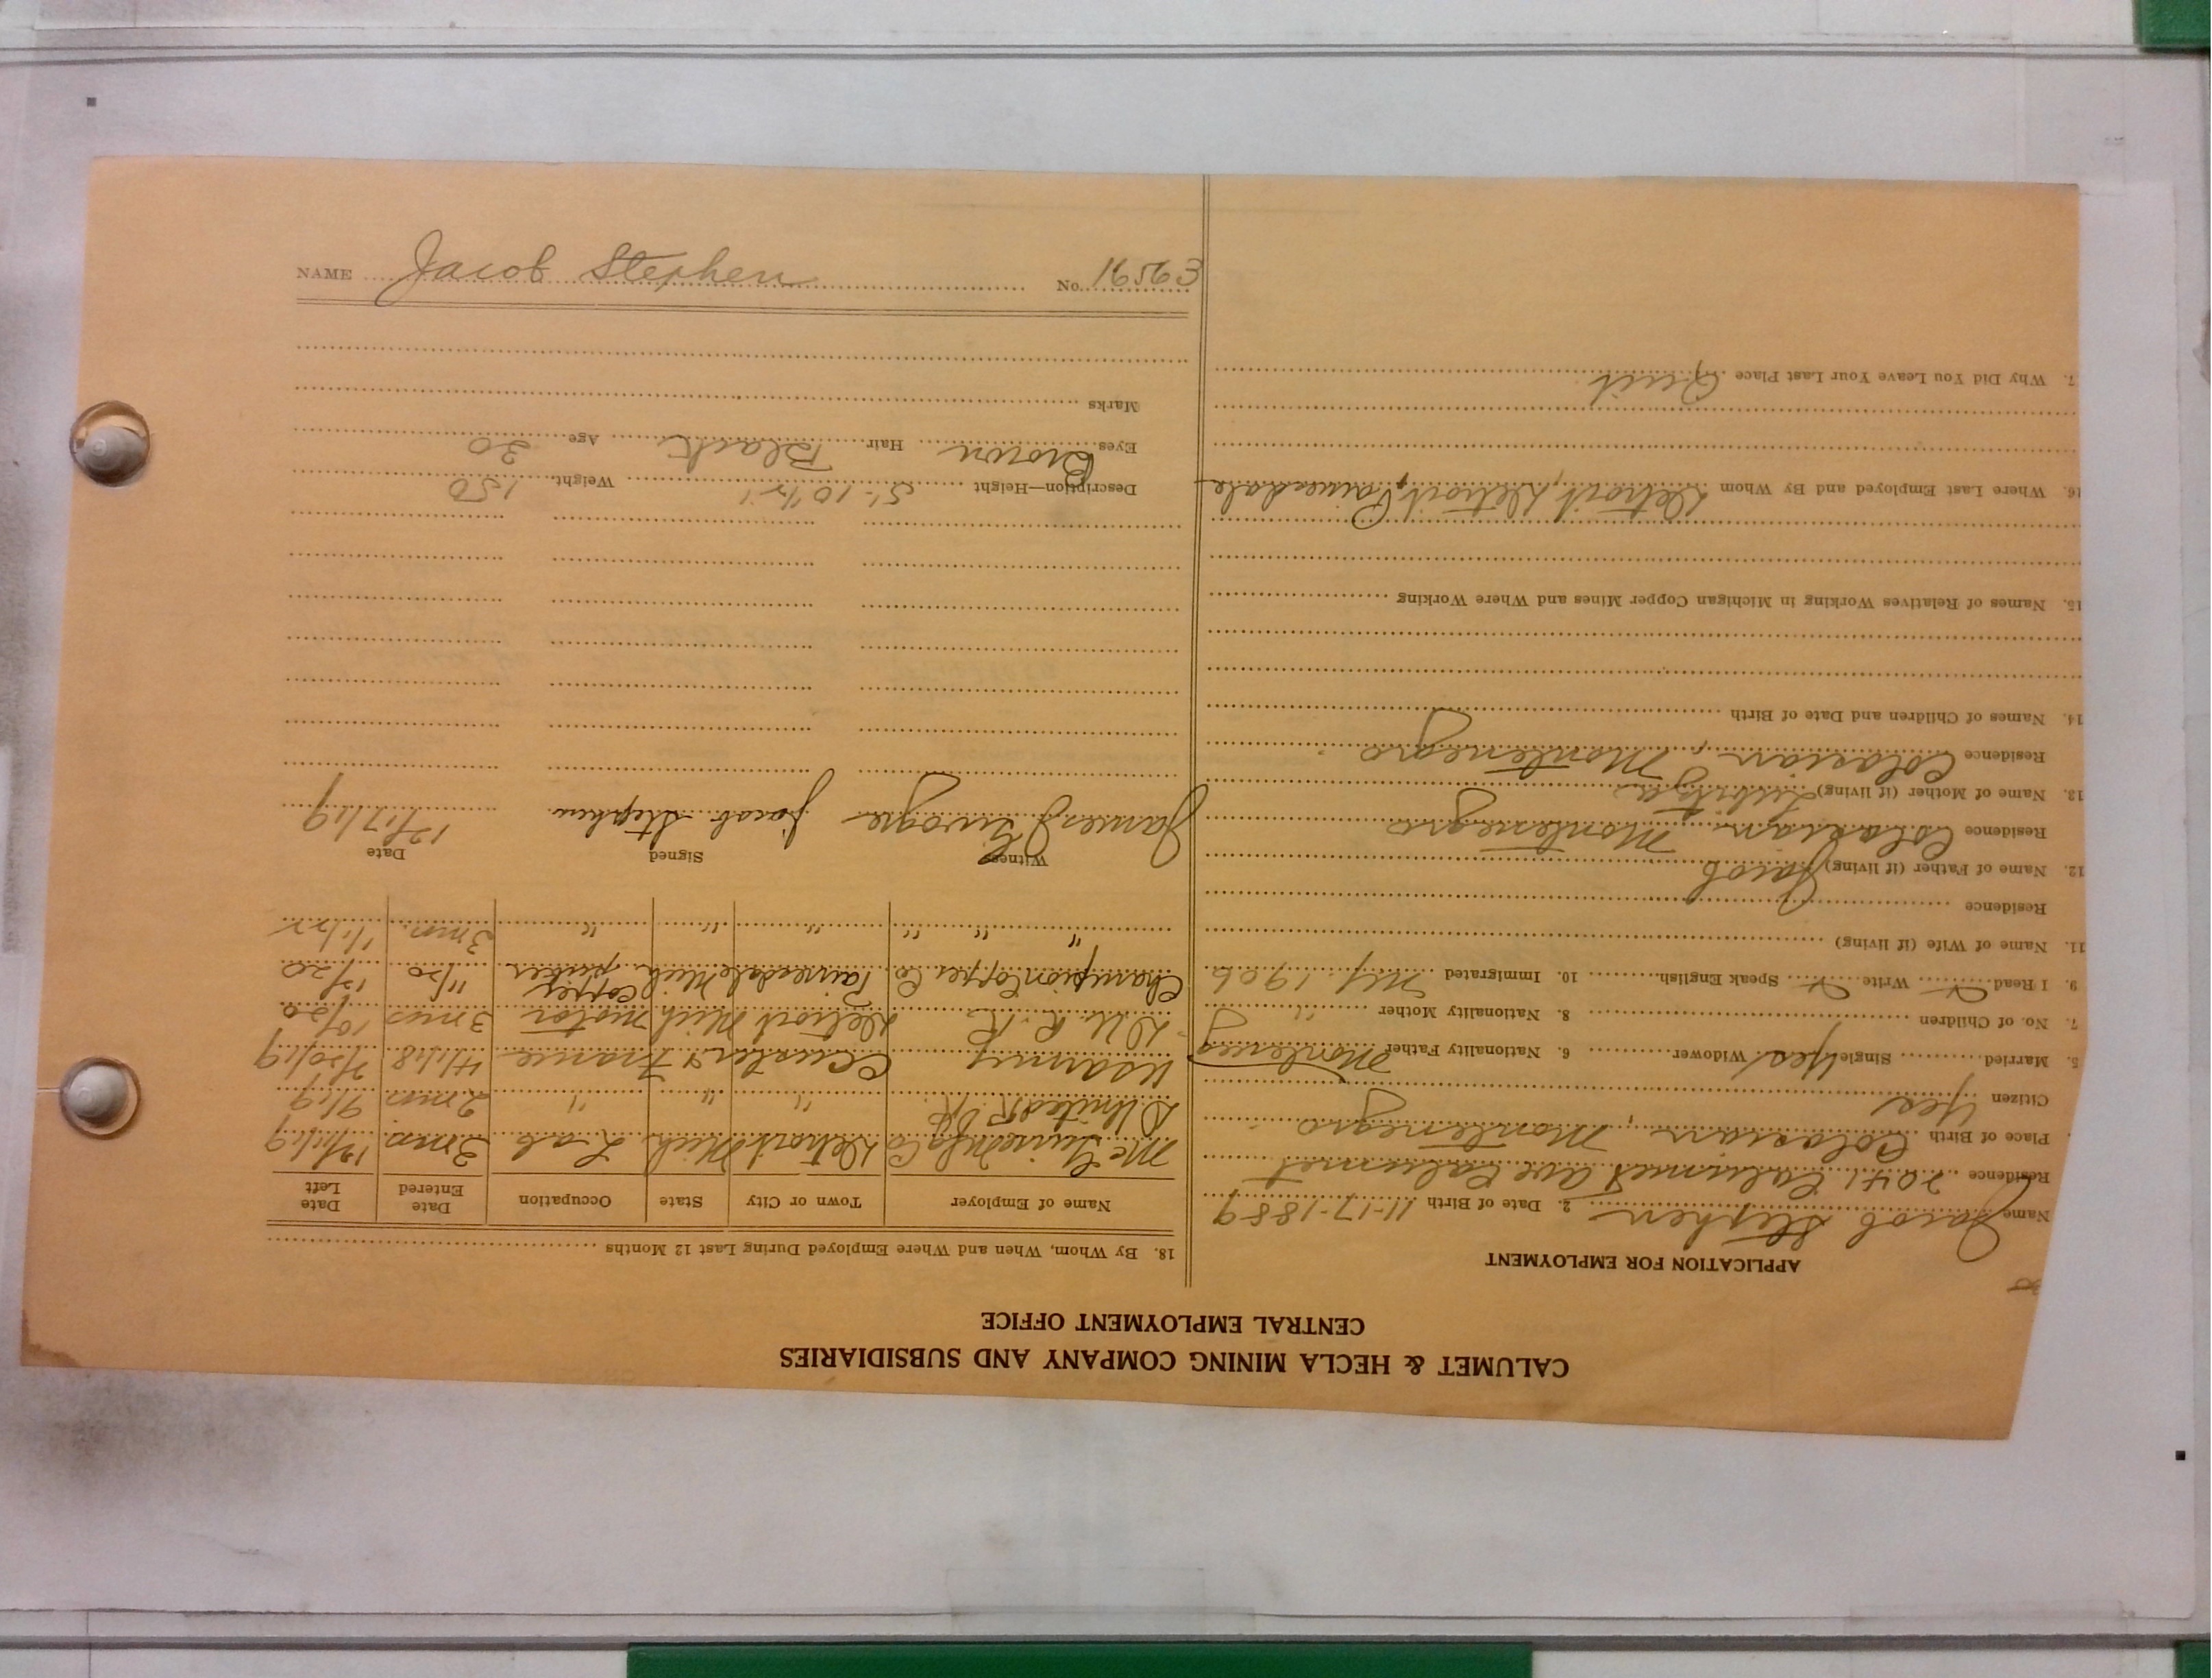 CALUMET & HECLA MINING COMPANY AND SUBSIDIARIES
CENTRAL EMPLOYMENT OFFICE
APPLICATION FOR EMPLOYMENT
Name Jacob Stephen 2. Date of Birth 11-17-1889
Residence 2041 Calumet ave Calumet
Place of Birth Colasian, Montenegro
Citizen Yes
5. Married Single Yes Widower 6. Nationality Father Monteneg
7. No. of Children 8. Nationality Mother "
9. I Read Write Speak English 10. Immigrated NY 1906
11. Name of Wife (if living)
Residence
12. Name of Father (if living) Jacob
Residence Colasian Montenegro
13. Name of Mother (if living)
Residence Colasian, Montenegro
14. Names of Children and Date of Birth
15. Names of Relatives Working in Michigan Copper Mines and Where Working
16. Where Last Employed and By Whom Detroit, Detroit, Painesdale
7. Why Did You Leave Your Last Place Quit
18. By Whom, When and Where Employed During Last 12 Months
Name of Employer Town or City State Occupation Date Entered Date Left
Mfg Co Detroit Mich Lab 3 mos 12/1/19
D United R R " " " 2 mos 9/19
US army France 4/1/18 7/20/19
D U R R Detroit Mich motor 3 mos 10/20
Champion Copper Co Painesdale Mich copper picker 11/20 12/20
" " " " " " 3 mos 1/1/22
Witness Signed Date
James J Jacob Stephen 12/17/19
Description—Height 5'-10 1/2" Weight 150
Eyes Brown Hair Black Age 30
Marks
NAME Jacob Stephen No. 16563